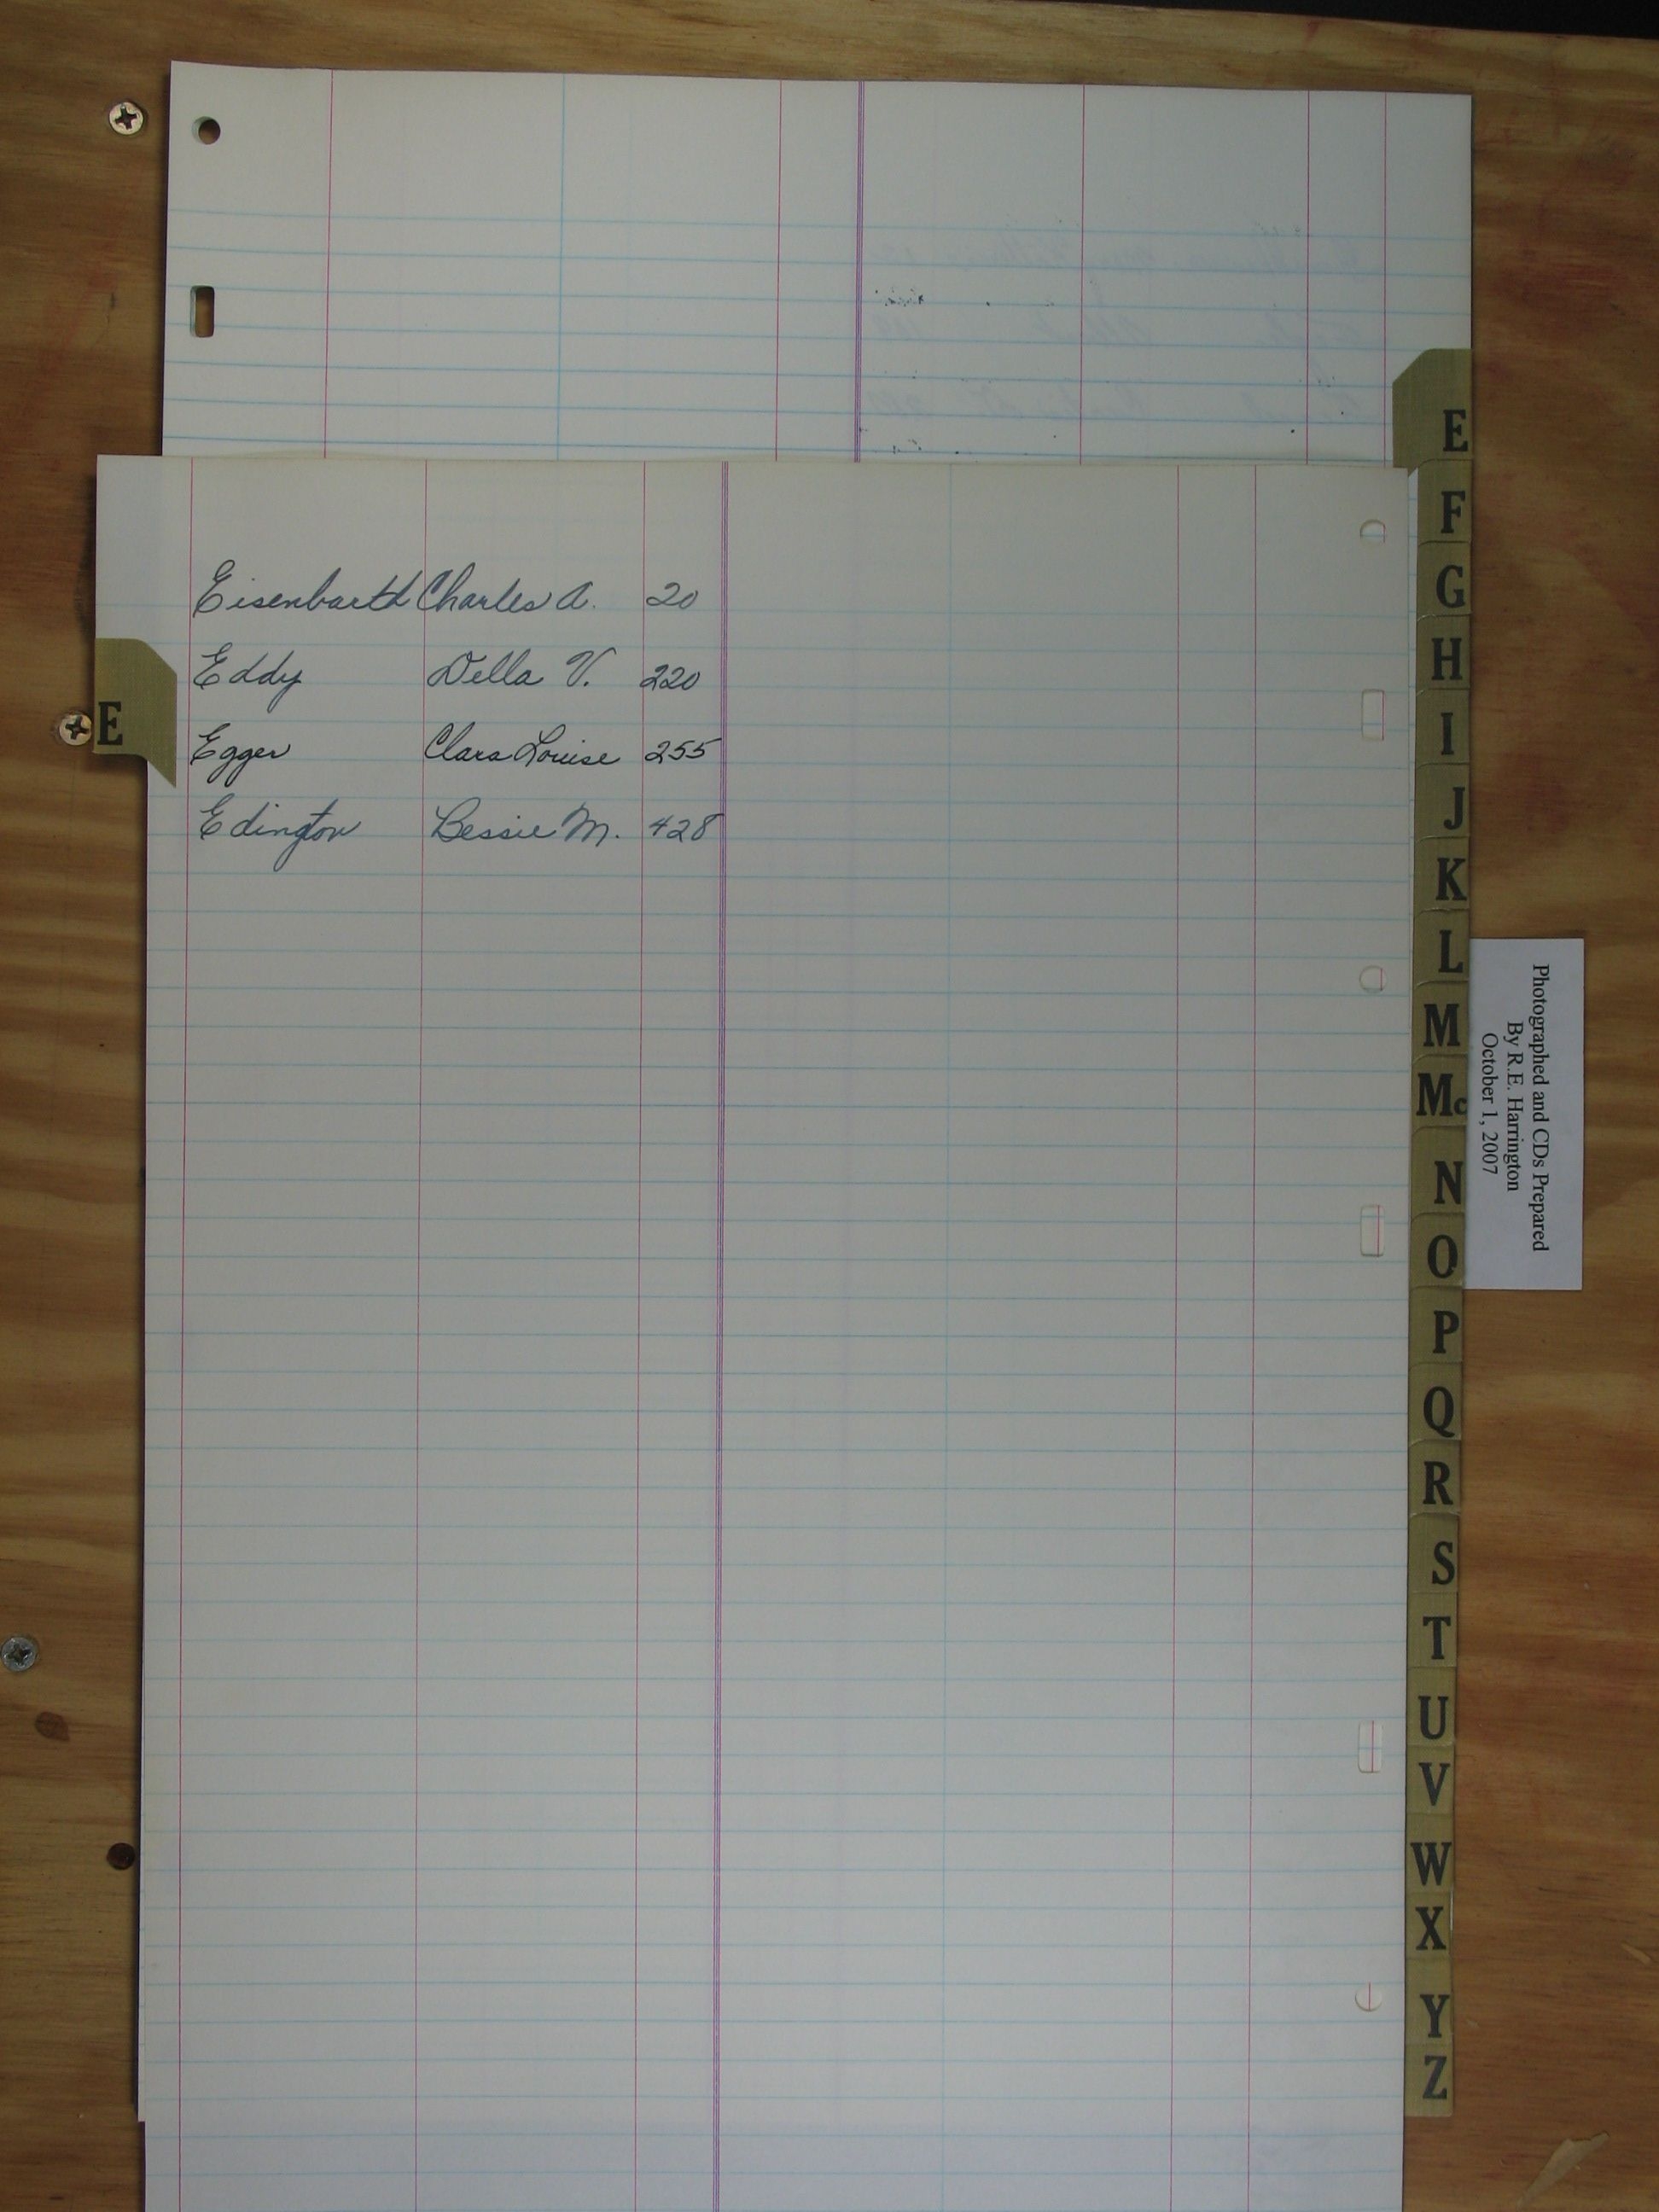 Eisenbarth Charles A. 20
Eddy Della V. 220
Egger Clara Louise 255
Edington Bessie M. 428
E
E
F
G
H
I
J
K
L
M
Mc
N
O
P
Q
R
S
T
U
V
W
X
Y
Z
Photographed and CDs Prepared
By R.E. Harrington
October 1, 2007